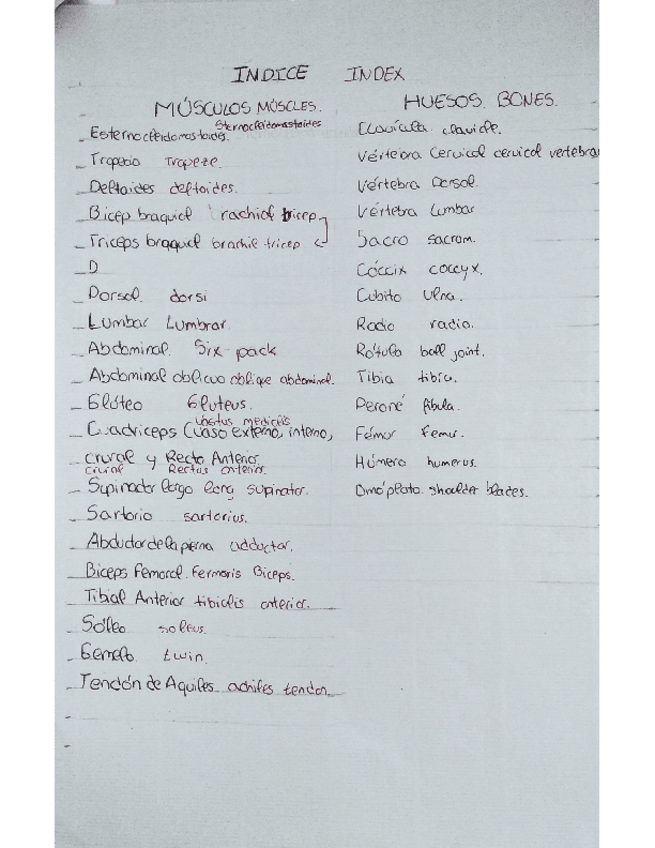 INDICE INDEX
MÚSCULOS MÚSCLES.
Esternocleidomastoides. Sternocleidomastoides
_ Trapecio Trapeze.
_ Deltoides deltoides.
_ Bicep braquial brachial bicep
_ Triceps braquial brachie tricep
_ D
_ Dorsal. dorsi
_ Lumbar Lumbrar
_ Abdominal. Six-pack
_ Abdominal oblicuo oblique abdominal.
_ Glúteo Gluteus.
vastus medialis
_ Cuadriceps (Vaso externo, interno,
crural y Recto Anterior.
crural Rectus anterior.
_ Supinador largo long supinator.
_ Sartorio sartorius.
_ Abductor de la pierna adductor.
_ Biceps Femoral. Fermoris Biceps.
_ Tibial Anterior tibialis anterior.
_ Sóleo soleus.
_ Gemelo twin.
_ Tendón de Aquiles achiles tendon
HUESOS. BONES.
Clavícula clavicle.
Vértebra Cervical cervical vertebra
Vértebra Dorsal.
Vértebra Lumbar
Sacro sacrom.
Cóccix coccyx.
Cubito ulna.
Radio radio.
Rótula ball joint.
Tibia tibia.
Peroné fibula.
Fémur femur.
Húmero humerus.
Omóplato. shoulder blades.